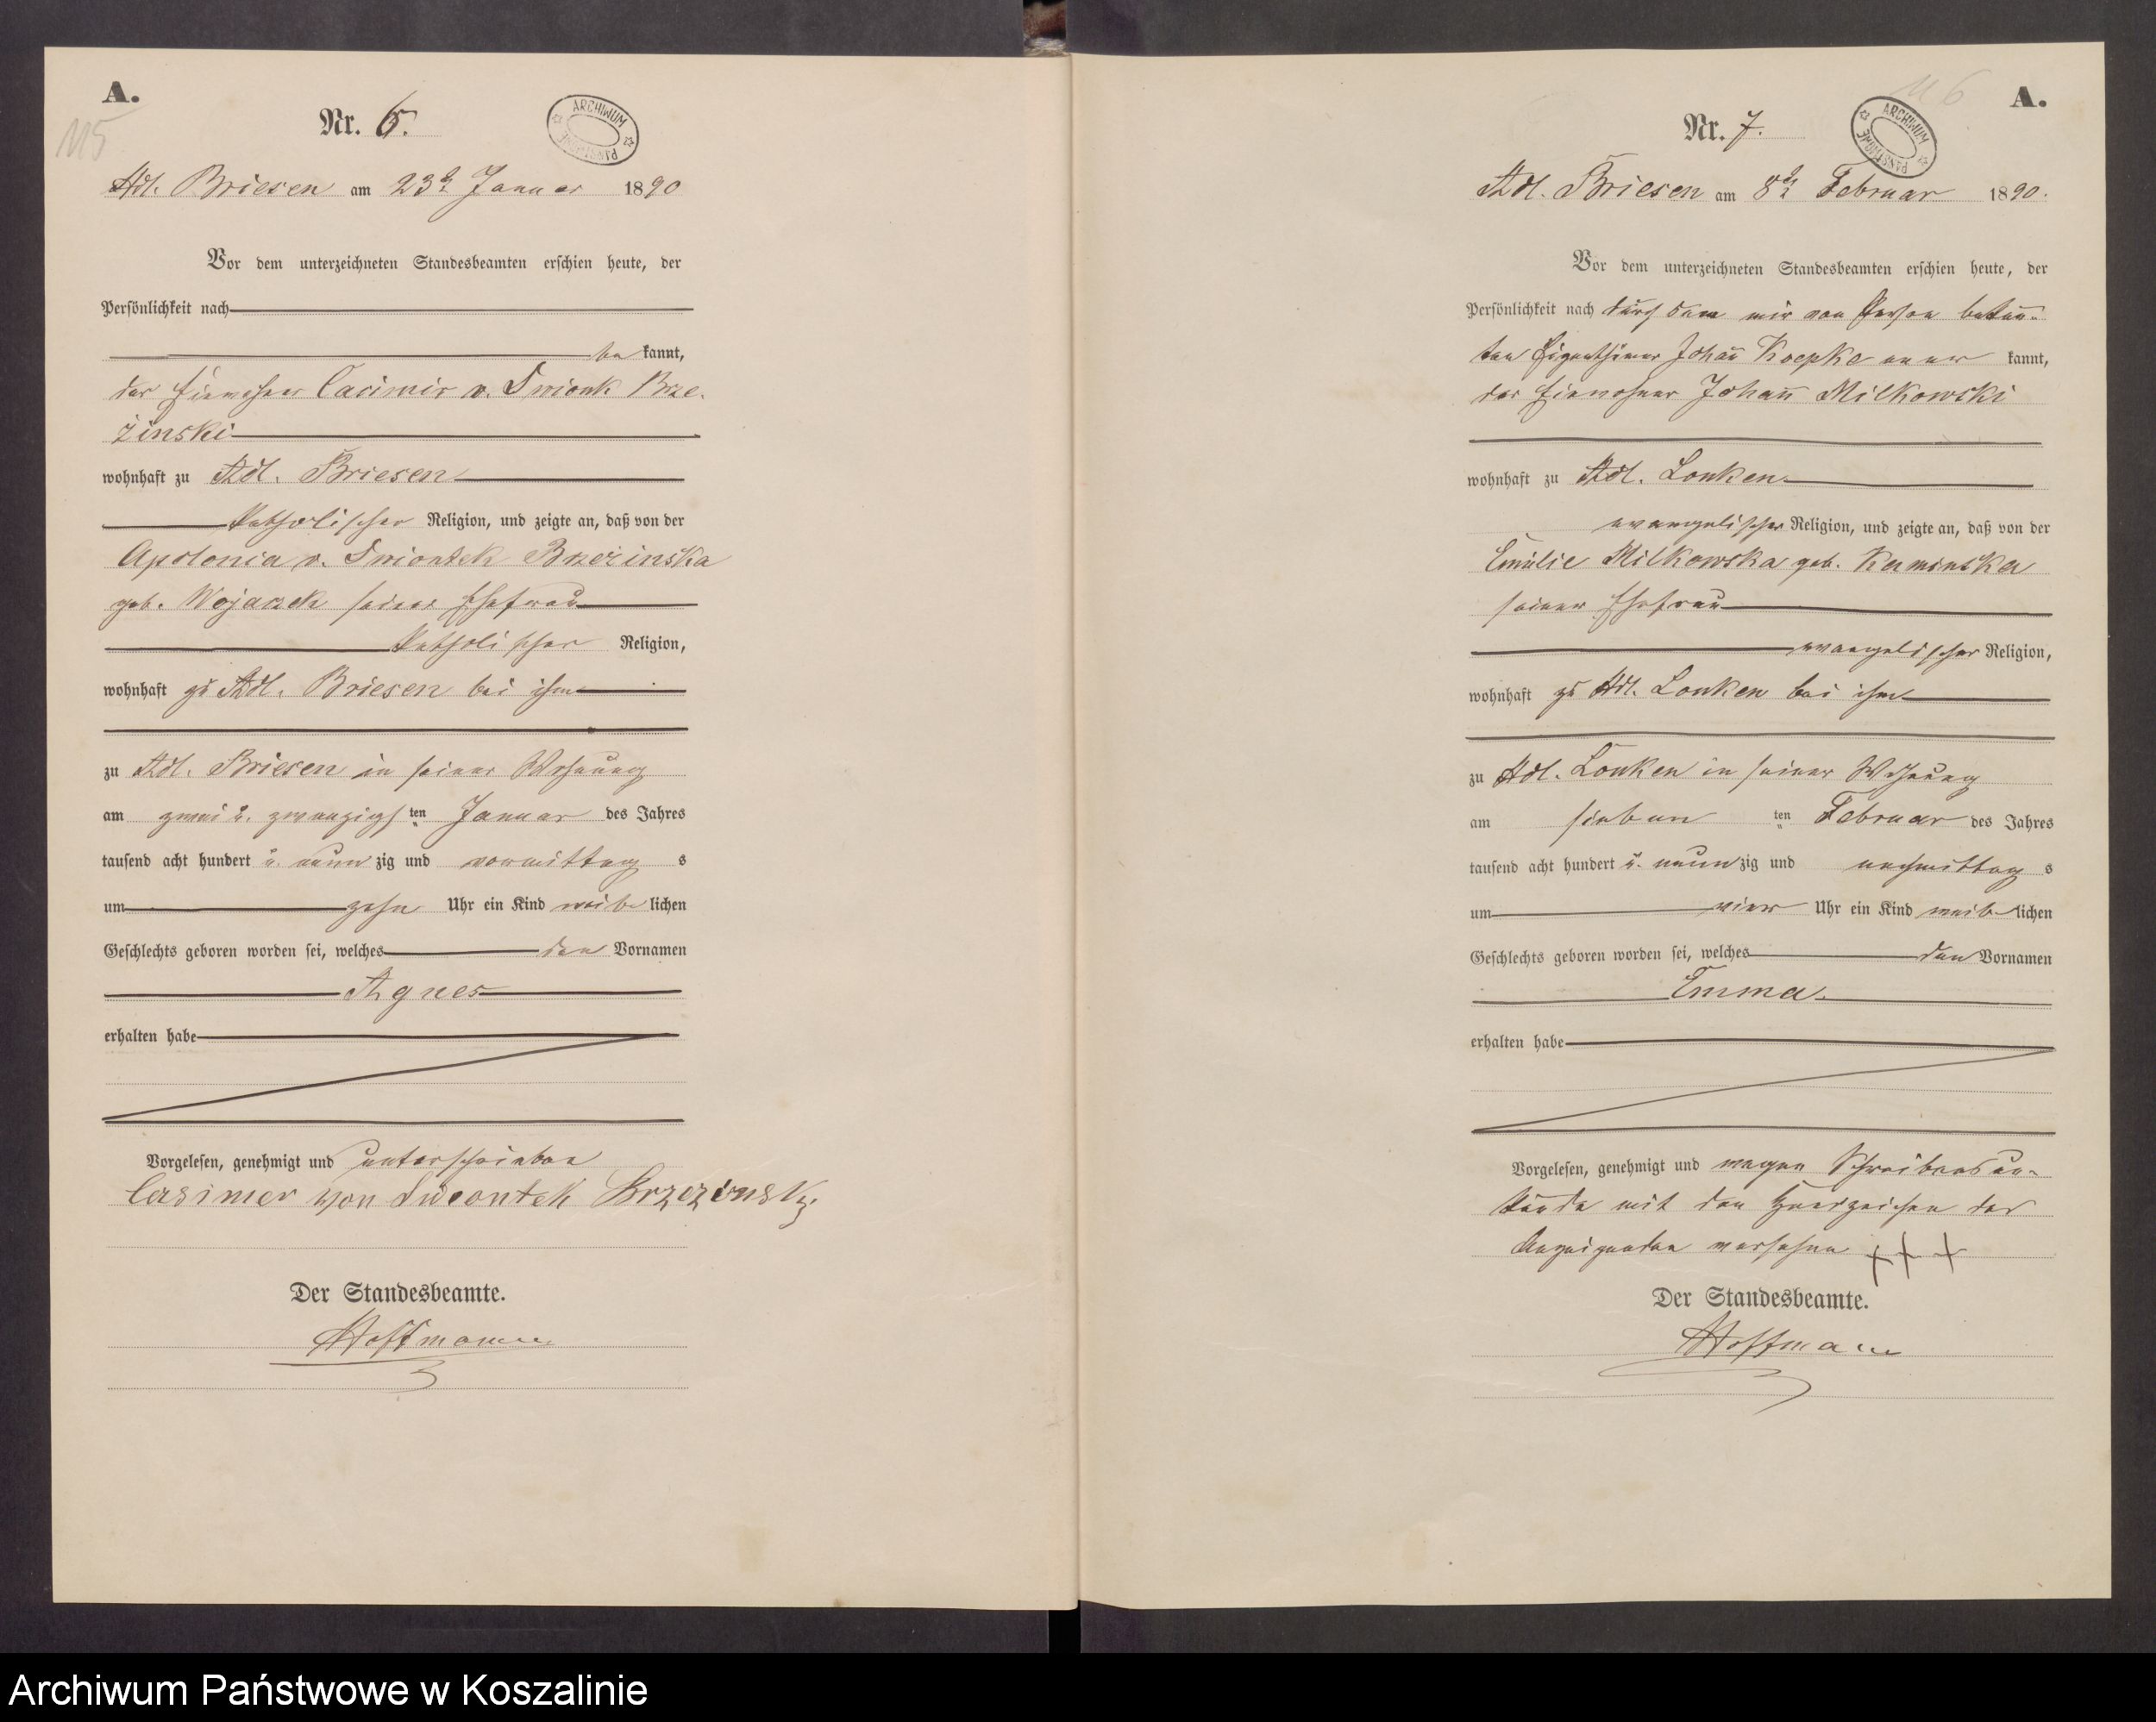 A.
115
Nr. 6.
ARCHIWUM PAŃSTWOWE
Adl. Briesen am 23ten Januar 1890
Vor dem unterzeichneten Standesbeamten erschien heute, der
Persönlichkeit nach
be kannt,
der Einwohner Casimir v. Swionk Brze-
zinski
wohnhaft zu Adl. Briesen
katholischer Religion, und zeigte an, daß von der
Apolonia v. Swiontek Brzezinska
geb. Wojaczek seiner Ehefrau
katholischer Religion,
wohnhaft zu Adl. Briesen bei ihm
zu Adl. Briesen in seiner Wohnung
am zwei u. zwanzigs ten Januar des Jahres
tausend acht hundert u. neun zig und vormittag s
um zehn Uhr ein Kind weib lichen
Geschlechts geboren worden sei, welches den Vornamen
Agnes
erhalten habe
Vorgelesen, genehmigt und unterschrieben
Casimer von Sweontek Brzezinski
Der Standesbeamte.
Hoffmann
116
A.
Nr. 7.
ARCHIWUM PAŃSTWOWE
Adl. Briesen am 8ten Februar 1890.
Vor dem unterzeichneten Standesbeamten erschien heute, der
Persönlichkeit nach durch den mir von Person bekann-
ten Eigenthümer Johann Koepke aner kannt,
der Einwohner Johann Milkowski
wohnhaft zu Adl. Lonken
evangelischer Religion, und zeigte an, daß von der
Emilie Milkowska geb. Kaminska
seiner Ehefrau
evangelischer Religion,
wohnhaft zu Adl. Lonken bei ihm
zu Adl. Lonken in seiner Wohnung
am sieben ten Februar des Jahres
tausend acht hundert u. neun zig und nachmittag s
um vier Uhr ein Kind weib lichen
Geschlechts geboren worden sei, welches den Vornamen
Emma
erhalten habe
Vorgelesen, genehmigt und wegen Schreibensun-
kunde mit den Handzeichen des
Anzeigenden versehen + + +
Der Standesbeamte.
Hoffmann
Archiwum Państwowe w Koszalinie